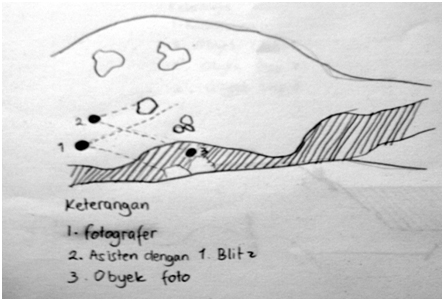 2
1
3
Keterangan
1. fotografer
2. Asisten dengan 1. Blitz
3. Obyek foto